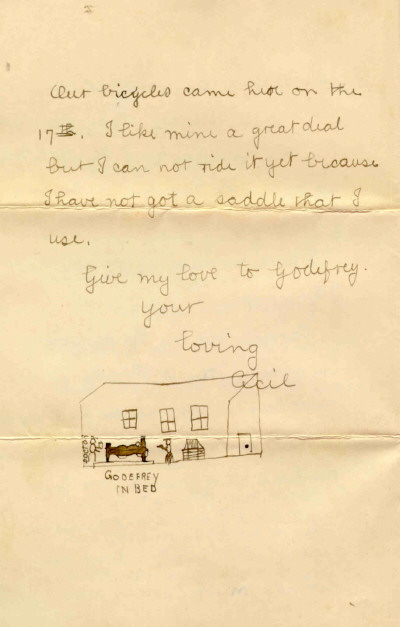 Our bicycles came here on the
17th. I like mine a great deal
but I can not ride it yet because
I have not got a saddle that I
use.
Give my love to Godefrey.
Your
loving
Cecil
GODEFREY
IN BED